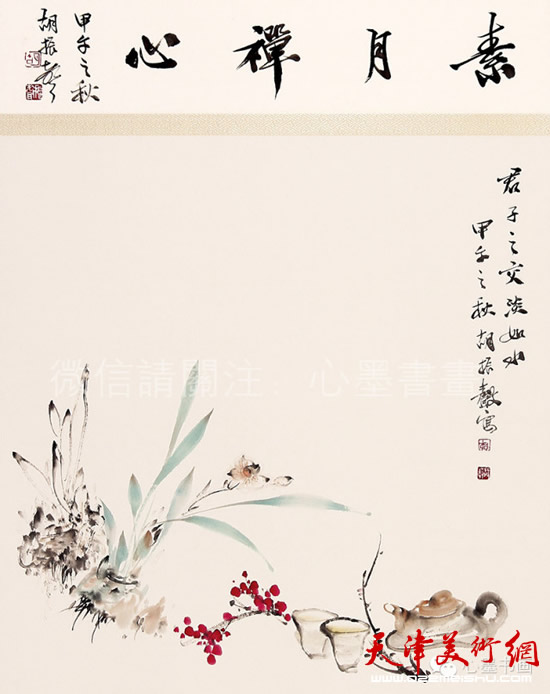 素月禪心
甲午之秋
胡振㪣
君子之交淡如水
甲午之秋胡振㪣寫
微信請關注：心墨書畫
天津美術網
www.022meishu.com
心墨书画